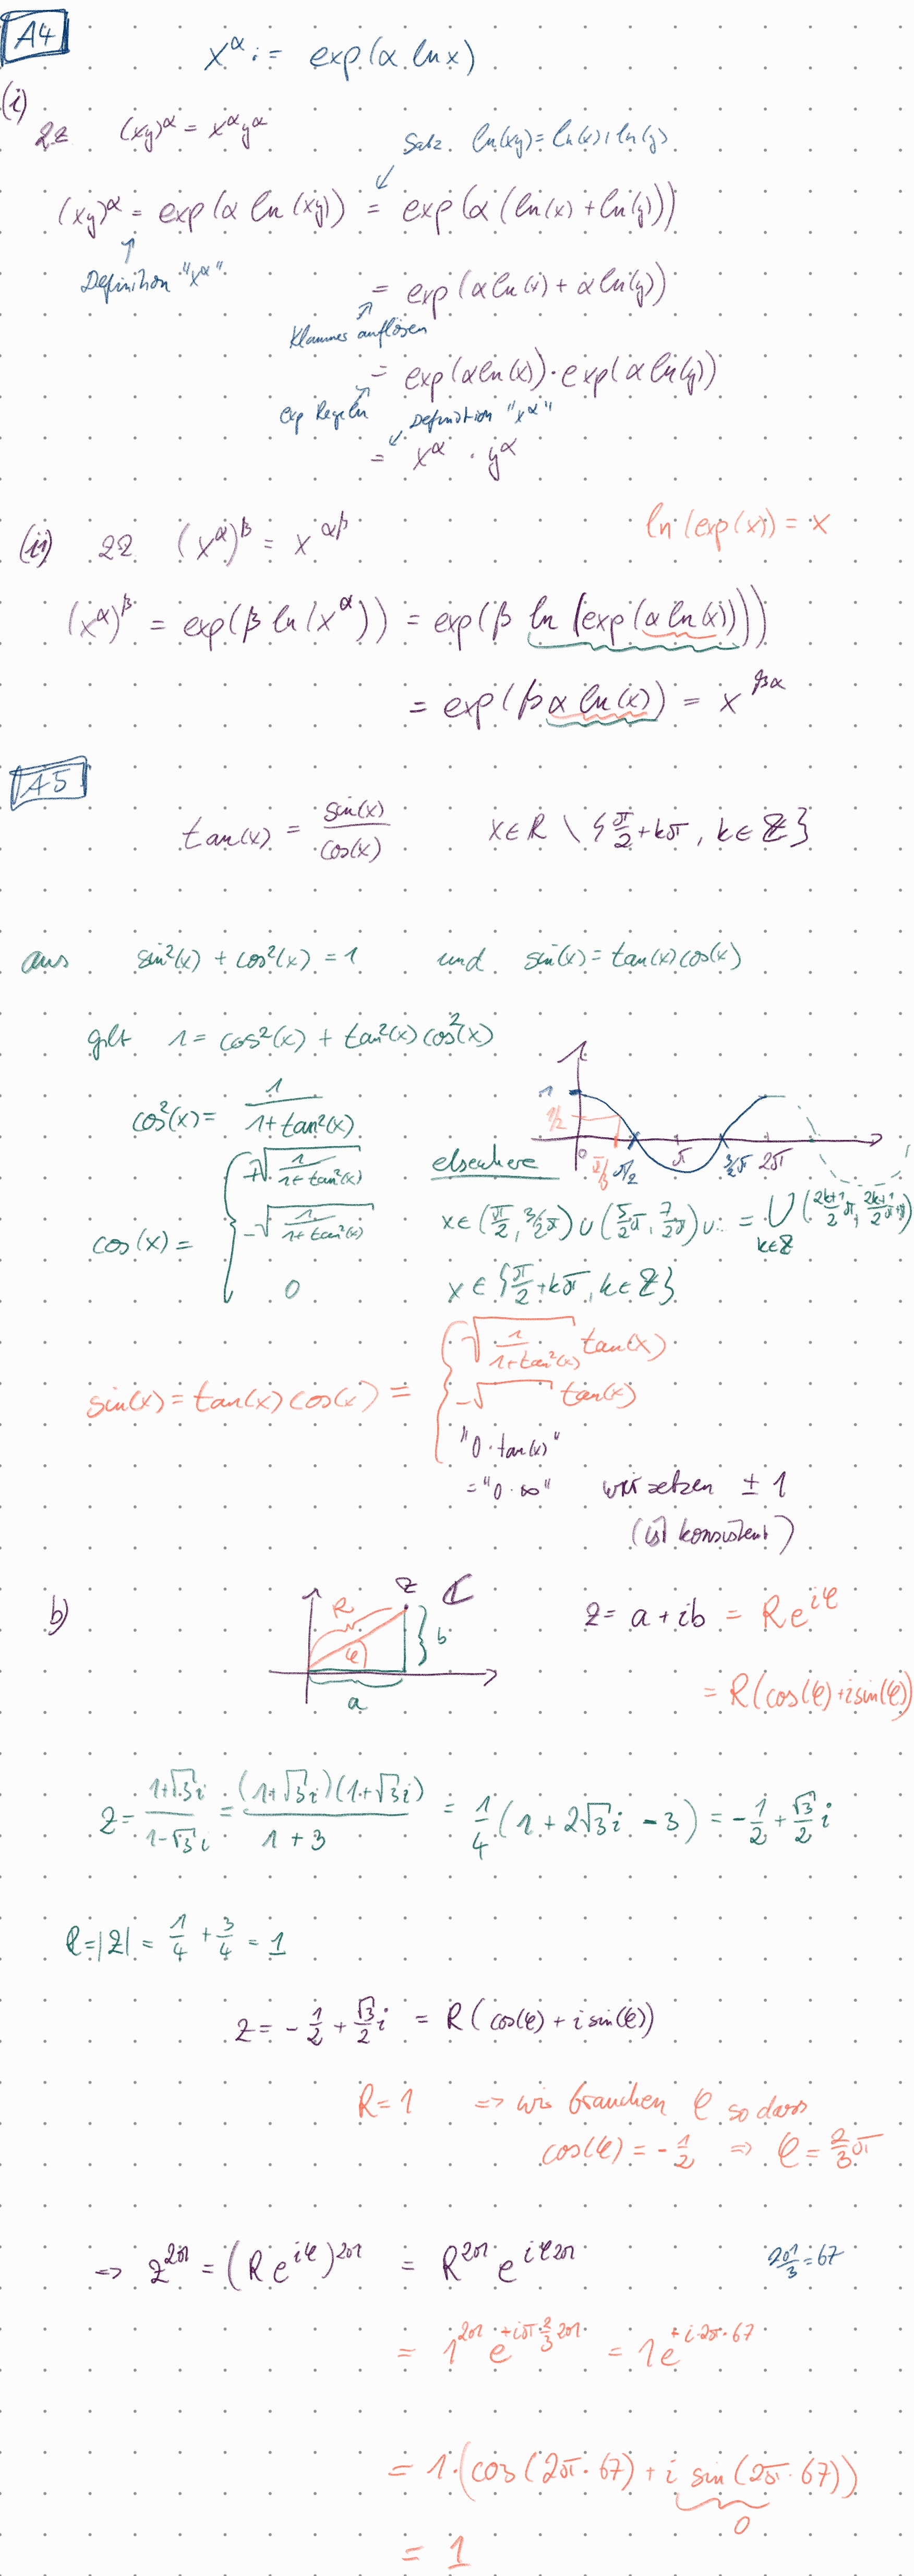 A4
x^α := exp(α ln x)
(i)
zz (xy)^α = x^α y^α
Satz ln(xy) = ln(x) + ln(y)
(xy)^α = exp(α ln(xy)) = exp(α(ln(x) + ln(y)))
Definition "x^α"
= exp(α ln(x) + α ln(y))
Klammer auflösen
= exp(α ln(x)) · exp(α ln(y))
exp Regeln Definition "x^α"
= x^α · y^α
(ii) zz (x^α)^β = x^{αβ} ln(exp(x)) = x
(x^α)^β = exp(β ln(x^α)) = exp(β ln(exp(α ln(x))))
= exp(β α ln(x)) = x^{βα}
A5
tan(x) = sin(x)/cos(x) x ∈ R \ {π/2 + kπ, k ∈ Z}
aus sin²(x) + cos²(x) = 1 und sin(x) = tan(x) cos(x)
gilt 1 = cos²(x) + tan²(x) cos²(x)
cos²(x) = 1/(1 + tan²(x))
1 1/2 0 π/3 π/2 π 3/2π 2π
cos(x) = { +√(1/(1+tan²(x))) elsewhere
-√(1/(1+tan²(x))) x ∈ (π/2, 3/2π) ∪ (5/2π, 7/2π) ∪ .. = ⋃ k∈Z
0 x ∈ {π/2 + kπ, k ∈ Z}
sin(x) = tan(x) cos(x) = { √(1/(1+tan²(x))) tan(x)
-√ tan(x)
"0 · tan(x)"
= "0 · ∞" wir setzen ± 1
(ist konsistent)
b) R φ a b z C z = a + ib = R e^{iφ}
= R(cos(φ) + i sin(φ))
z = (1+√3i)/(1-√3i) = (1+√3i)(1+√3i)/(1+3) = 1/4 (1 + 2√3i - 3) = -1/2 + √3/2 i
R = |z| = 1/4 + 3/4 = 1
z = -1/2 + √3/2 i = R(cos(φ) + i sin(φ))
R = 1 => wir brauchen φ so dass
cos(φ) = -1/2 => φ = 2/3 π
=> z^{201} = (R e^{iφ})^{201} = R^{201} e^{iφ201} 201/3 = 67
= 1^{201} e^{+iπ 2/3 201} = 1 e^{+i·2π·67}
= 1·(cos(2π·67) + i sin(2π·67))
0
= 1